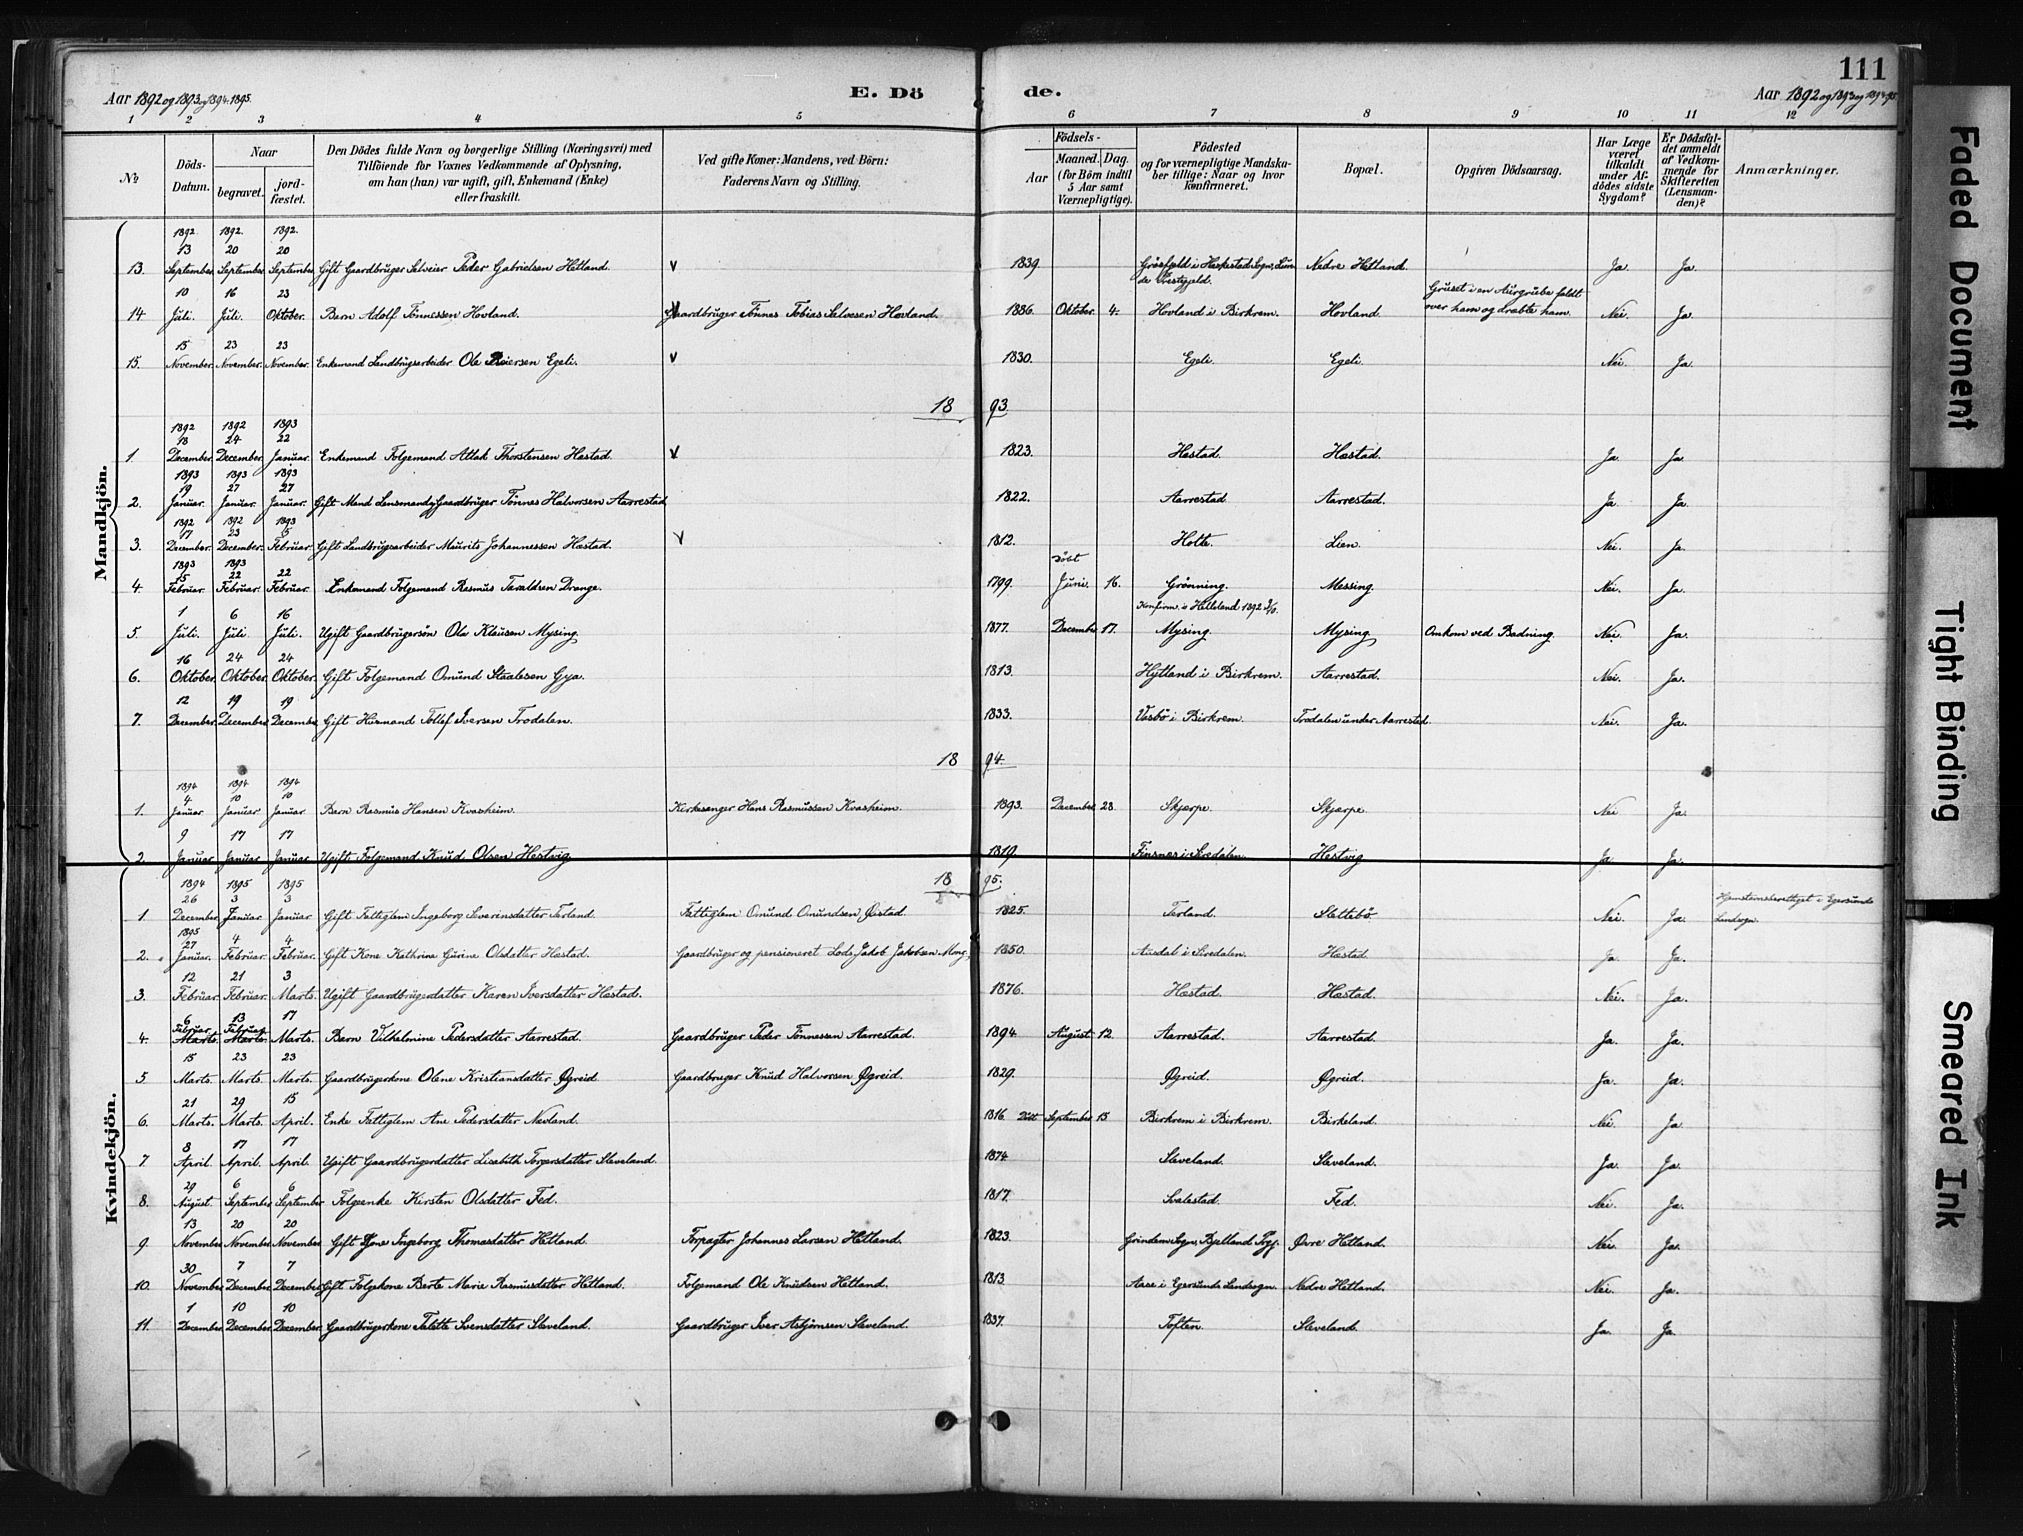 111
Aar 1892 og 1893 og 1894. 1895.
E. Dö de.
Aar 1892 og 1893 og 1894 95.
1 2 3 4 5 6 7 8 9 10 11 12
No
Döds-Datum.
Naar
begravet.
jord-fæstet.
Den Dödes fulde Navn og borgerlige Stilling (Næringsvei) med
Tilföiende for Voxnes Vedkommende af Oplysning,
om han (hun) var ugift, gift, Enkemand (Enke)
eller fraskilt.
Ved gifte Koner: Mandens, ved Börn:
Faderens Navn og Stilling.
Födsels-
Aar
Maaned. Dag.
(for Börn indtil
5 Aar samt
Værnepligtige).
Födested
og for værnepligtige Mandska-
ber tillige: Naar og hvor
konfirmeret.
Bopæl.
Opgiven Dödsaarsag.
Har Læge
været
tilkaldt
under Af-
dödes sidste
Sygdom?
Er Dödsfal-
det anmeldt
af Vedkom-
mende for
Skifteretten
(Lensman-
den)?
Anmærkninger.
Mandkjön.
1892. 1892. 1892.
13 20 20
13. September. September. September. Gift Gaardbruger Selveier Peder Gabrielsen Hetland. v 1839. i Heskestad Sogn, Lun- Nedre Hetland. Ja. Ja.
de Prestegjeld.
10 16 23
Gruset i en Aurgrube faldt
14 Juli. Juli. Oktober. Barn Adolf Tönnessen Hovland. Gaardbruger Tönnes Tobias Salvesen Hovland. 1886. Oktober. 4. Hovland i Birkrem. Hovland. over ham og dræbte ham. Nei. Ja.
15 23 23
15. November. November. November. Enkemand Landbrugsarbeider Ole Reiersen Egeli. v 1830. Egeli. Egeli. Nei. Ja.
18 93.
1892 1892 1893
18 24 22
1. December. December. Januar. Enkemand Folgemand Atlak Thorstensen Hæstad. v 1823. Hæstad. Hæstad. Ja. Ja
1893 1893 1893
19 27 27
2. Januar. Januar. Januar. Gift Mand Lensmand og Gaardbruger Tönnes Halvorsen Aarrestad 1822. Aarrestad Aarrestad. Ja Ja.
1892 1892 1893
17 23 5
3. December. December. Februar. Gift Landbrugsarbeider Maurits Johannessen Hæstad. v 1812. Holte. Lien. Nei. Ja.
1893 1893
15 22 22 döbt
4. Februar. Februar. Februar. Enkemand Folgemand Rasmus Taraldsen Drange. 1799. Juni. 16. Grönning. Messing. Nei. Ja.
1 6 16 Konfirm. i Helleland 1892
5. Juli. Juli. Juli. Ugift Gaardbrugersön Ole Klausen Mysing. 1877. December 17. Mysing. Mysing. Omkom ved Badning. Nei. Ja.
16 24 24
6. Oktober. Oktober. Oktober. Gift Folgemand Omund Staalesen Gya. 1813. Hytland i Birkrem. Aarrestad. Nei. Ja.
12 19 19
7. December. December. December. Gift Husmand Tollef Iversen Trodalen. 1833. Vasbö i Birkrem. Trodalen under Aarrestad Nei. Ja.
18 94.
1894 1894 1894
4 10 10
1. Januar Januar Januar Barn Rasmus Hansen Kvasheim. Kirkesanger Hans Rasmussen Kvasheim. 1893. December 28. Skjærpe. Skjærpe. Nei Ja.
9 17 17
2. Januar Januar Januar Ugift Folgemand Knud Olsen Hestvig. 1819. Finsnes i Siredalen. Hestvig Ja Ja.
Kvindekjön.
18 95.
1894 1895 1895
26 3 3
1. December. Januar Januar Gift Fattiglem Ingeborg Severinsdatter Terland. Fattiglem Omund Omundsen Öistad. 1825. Terland. Slettebö. Nei. Ja. i Egersunds
Landsogn.
1895
27 4 4
2. Januar. Februar. Februar. Gift Kone Kathrine Gurine Olsdatter Hæstad. Gaardbruger og pensioneret Lods Jakob Jakobsen Mong. 1850. Ausdal i Siredalen. Hæstad. Ja. Ja.
12 21 3
3. Februar. Februar. Marts. Ugift Gaardbrugerdatter Karen Iversdatter Hæstad. 1876. Hæstad. Hæstad. Nei. Ja.
6 13 17
Februar Februar
4. Marts. Marts. Marts. Barn Vilhelmine Pedersdatter Aarrestad. Gaardbruger Peder Tönnessen Aarrestad. 1894. August. 12. Aarrestad. Aarrestad. Ja. Ja.
15 23 23
5 Marts. Marts. Marts. Gaardbrugerkone Olene Kristiansdatter Øgreid. Gaardbruger Knud Halvorsen Øgreid. 1829. Øgreid. Øgreid. Ja. Ja.
21 29 15
6. Marts. Marts. April. Enke Fattiglem Ane Pedersdatter Nesland. 1816. Döbt September 15 Birkrem i Birkrem. Birkeland. Nei. Ja
8 17 17
7 April. April. April. Ugift Gaardbrugerdatter Lisabeth Torgersdatter Sleveland. 1874. Sleveland. Sleveland. Ja. Ja.
29 6 6
8. August. September. September. Folgeenke Kirsten Olsdatter Fed. 1817. Svalestad. Fed. Nei. Ja.
13 20 20
9 November. November. November. Gift Kone Ingeborg Thomasdatter Hetland. Forpagter Johannes Larsen Hetland. 1823. Grindem Sogn, Bjelland Prgj. Øvre Hetland. Nei. Ja.
30 7 7
10. November. December. December. Gift Folgekone Berte Marie Rasmusdatter Hetland. Folgemand Ole Knudsen Hetland. 1813. Aase i Egersunds Landsogn. Nedre Hetland. Nei. Ja.
1 10 10
11. December. December. December. Gaardbrugerkone Talette Svensdatter Sleveland. Gaardbruger Iver Asbjörnsen Sleveland. 1837. Toften. Sleveland. Ja. Ja.
Faded Document
Tight Binding
Smeared Ink